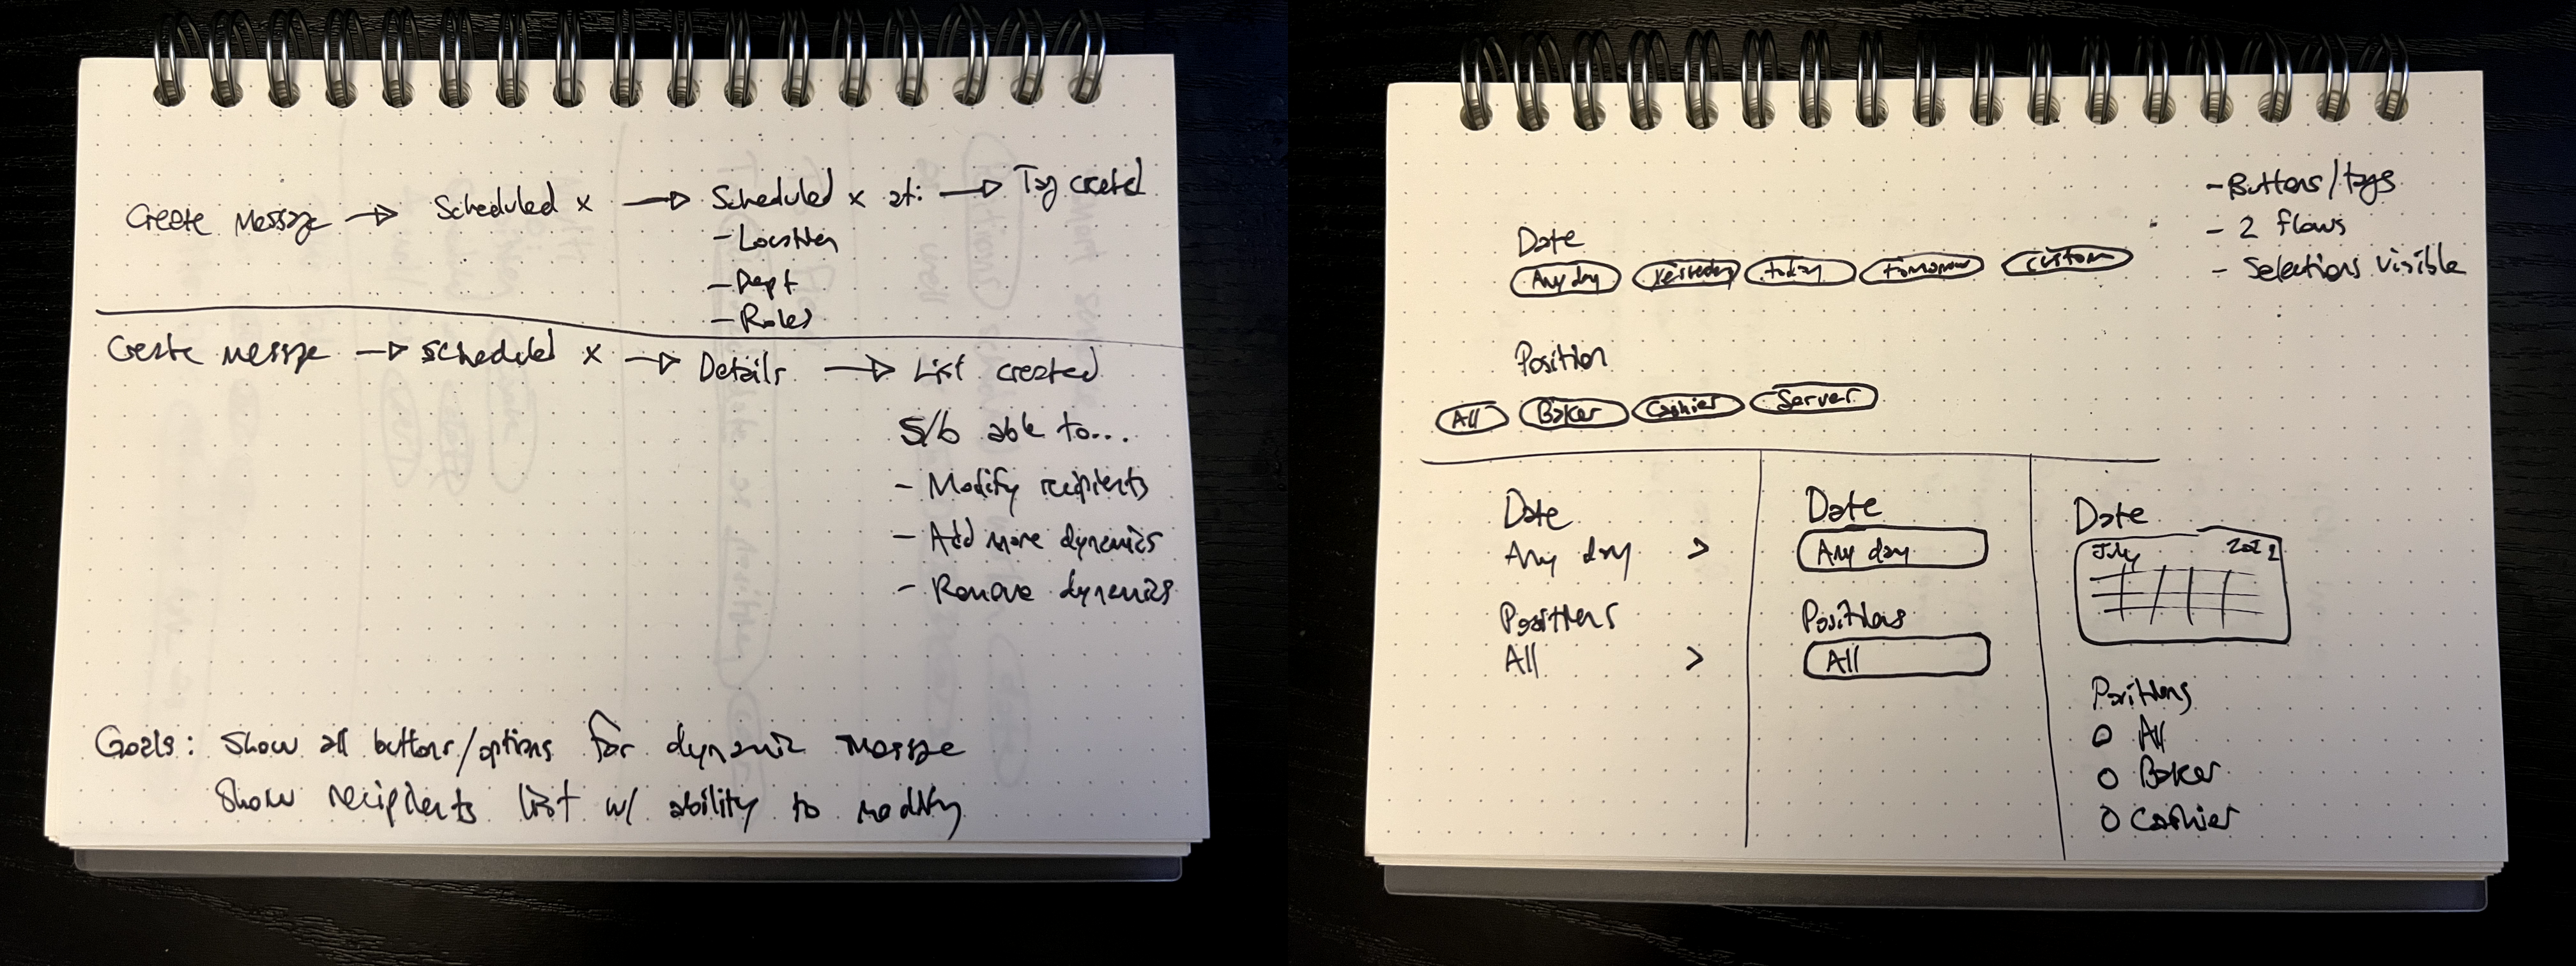 Create Message → Scheduled x → Scheduled x at: → Tag created
- Location
- Dept
- Roles
Create message → Scheduled x → Details → List created
S/b able to...
- Modify recipients
- Add more dynamics
- Remove dynamics
Goals: Show all buttons/options for dynamic message
Show recipients list w/ ability to modify
- Buttons/tags
- 2 flows
- Selections visible
Date
Any day yesterday today tomorrow custom
Position
All Baker Cashier Server
Date
Any day >
Positions
All >
Date
Any day
Positions
All
Date
July
Positions
All
Baker
Cashier